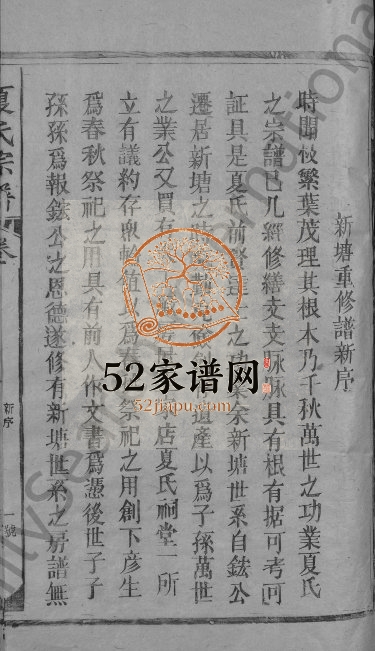 新塘重修譜新序
時聞枝繁葉茂理其根木乃千秋萬世之功業夏氏
之宗譜已几經修繕支支脉脉具有根有据可考可
証具是夏氏前 之功 余新塘世系自鉉公
遷居新塘之時 遺產以爲子孫萬世
之業公又買有 店夏氏祠堂一所
立有議約存眾輪值以爲春 祭祀之用創下彦生
爲春秋祭祀之用具有前人作文書爲憑後世子子
孫孫爲報鉉公之恩德遂修有新塘世系之房譜無
夏氏宗譜
卷
新序
一號
52家谱网
52jiapu.com